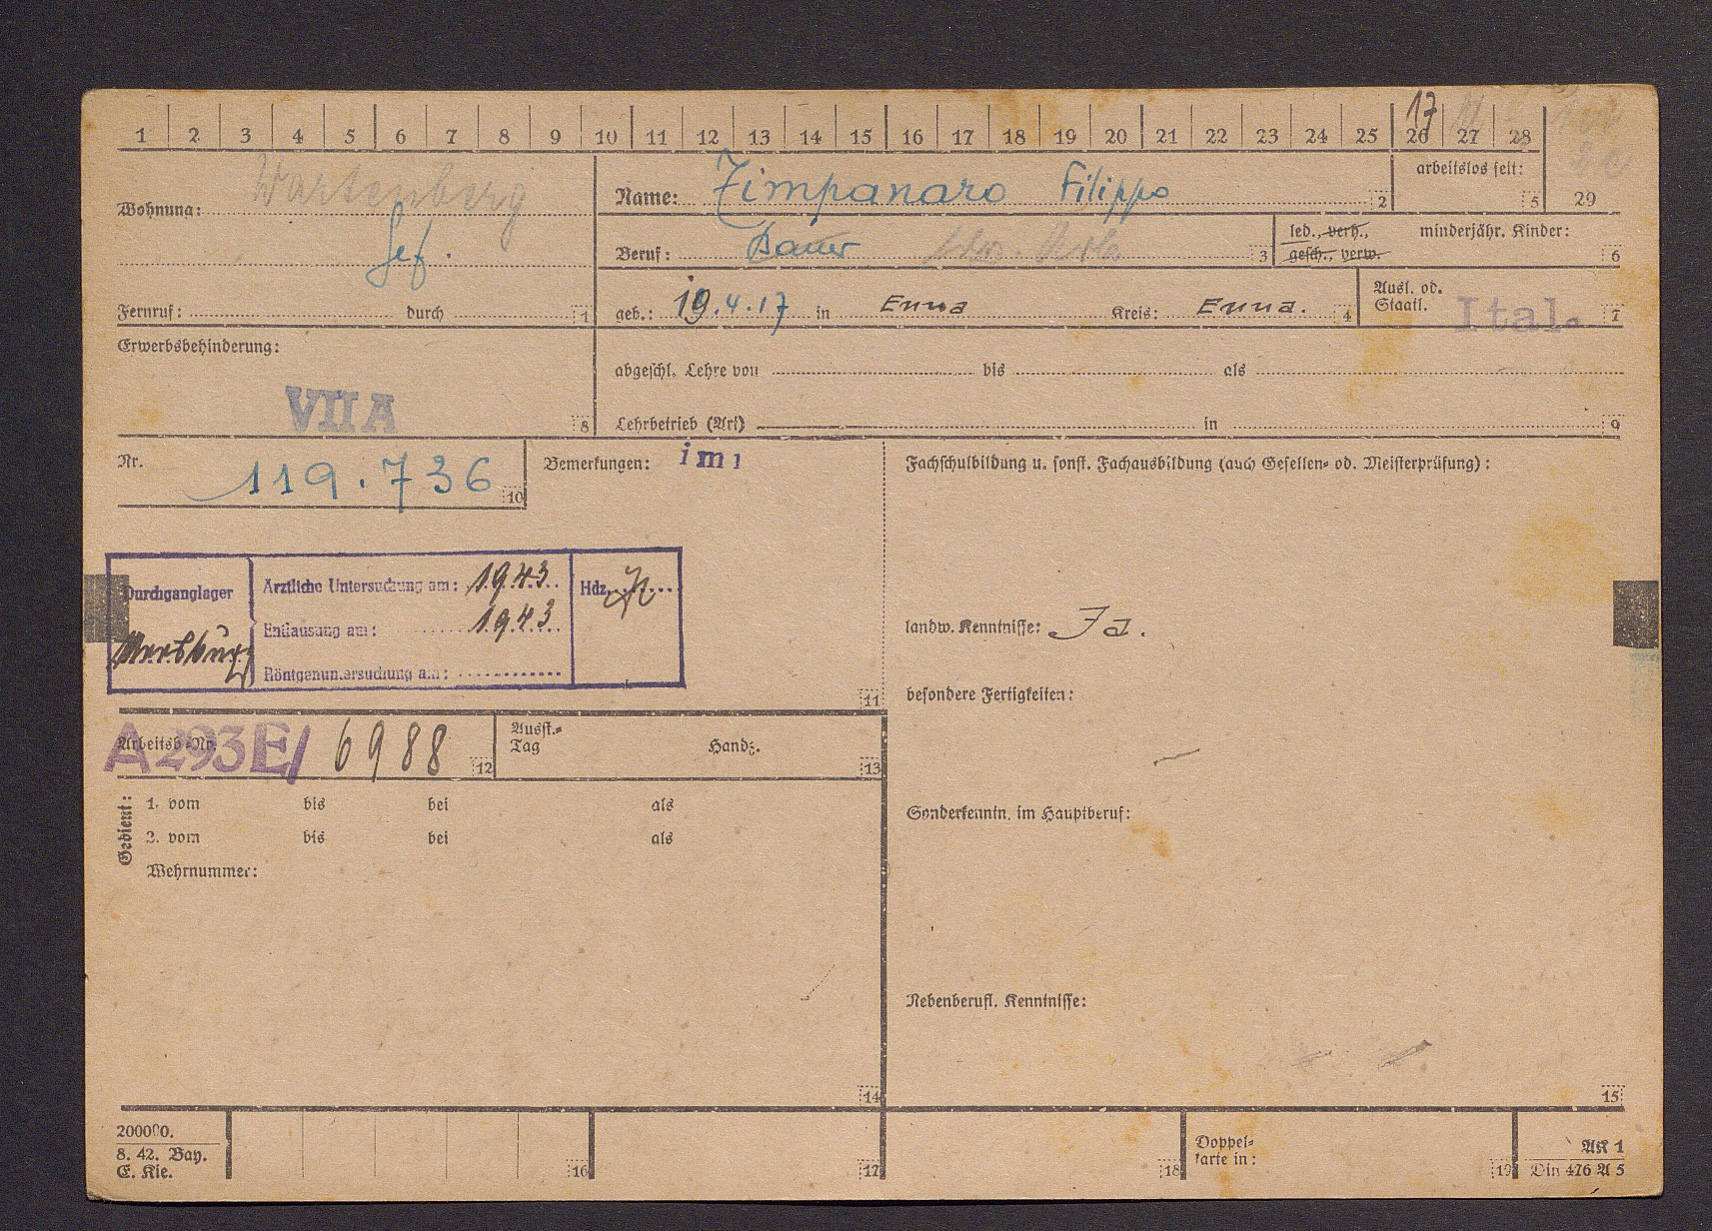 1 2 3 4 5 6 7 8 9 10 11 12 13 14 15 16 17 18 19 20 21 22 23 24 25 26 27 28
17
Wartenberg
Wohnung:
Gef.
Fernruf: durch 1
Name: Zimpanaro Filippo 2
arbeitslos seit: 5
29
Beruf: Bauer 3
led., verh.,
gesch., verw.
minderjähr. Kinder: 6
geb.: 19.4.17 in Enna Kreis: Enna. 4
Ausl. od.
Staatl. Ital. 7
Erwerbsbehinderung:
VII A 8
abgeschl. Lehre von bis als
Lehrbetrieb (Art) in 9
Nr. 119.736 10
Bemerkungen: imi
Fachschulbildung u. sonst. Fachausbildung (auch Gesellen- od. Meisterprüfung):
Durchganglager
Ärztliche Untersuchung am: 1943
Hdz.
Entlausung am: 1943
Röntgenuntersuchung am:
11
landw. Kenntnisse: Ja.
besondere Fertigkeiten:
Arbeitsb.-Nr. A 293E/ 6988 12
Ausst.-
Tag Handz. 13
Gedient:
1. vom bis bei als
2. vom bis bei als
Wehrnummer:
14
Sonderkenntn. im Hauptberuf:
Nebenberufl. Kenntnisse:
15
200000.
8. 42. Bay.
E. Kie.
16 17 18
Doppel-
karte in: 19
AK 1
Din 476 A 5